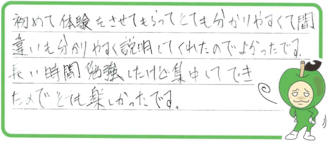 初めて体験をさせてもらってとても分かりやすくて間
違いも分かりやすく説明してくれたのでよかったです。
長い時間勉強したけど集中してでき
たのでとても楽しかったです。